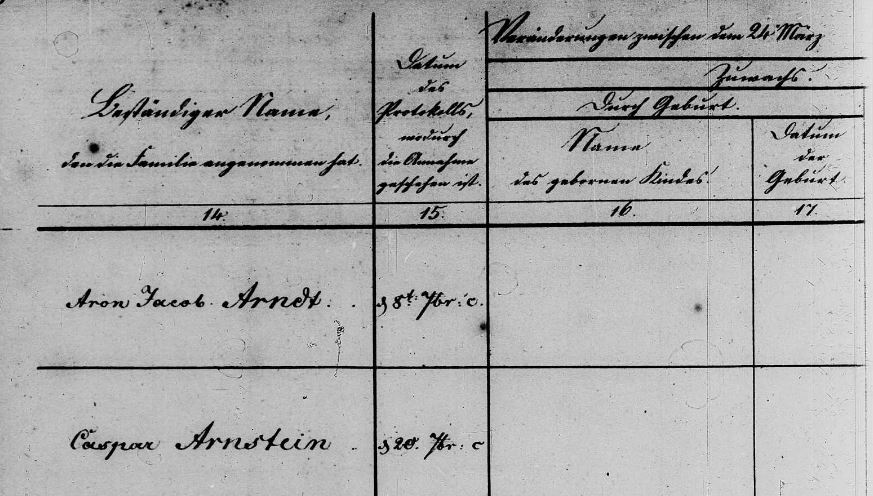 Beständiger Name,
den die Familie angenommen hat.
Datum
des
Protokolls,
wodurch
die Annahme
geschehen ist.
Veränderungen zwischen dem 24 März
Zuwachs.
Durch Geburt.
Name
des gebornen Kindes.
Datum
der
Geburt
14.
15.
16.
17.
Aron Jacob Arndt.
d 8t. 7br: c.
Caspar Arnstein
d 28. 7br: c